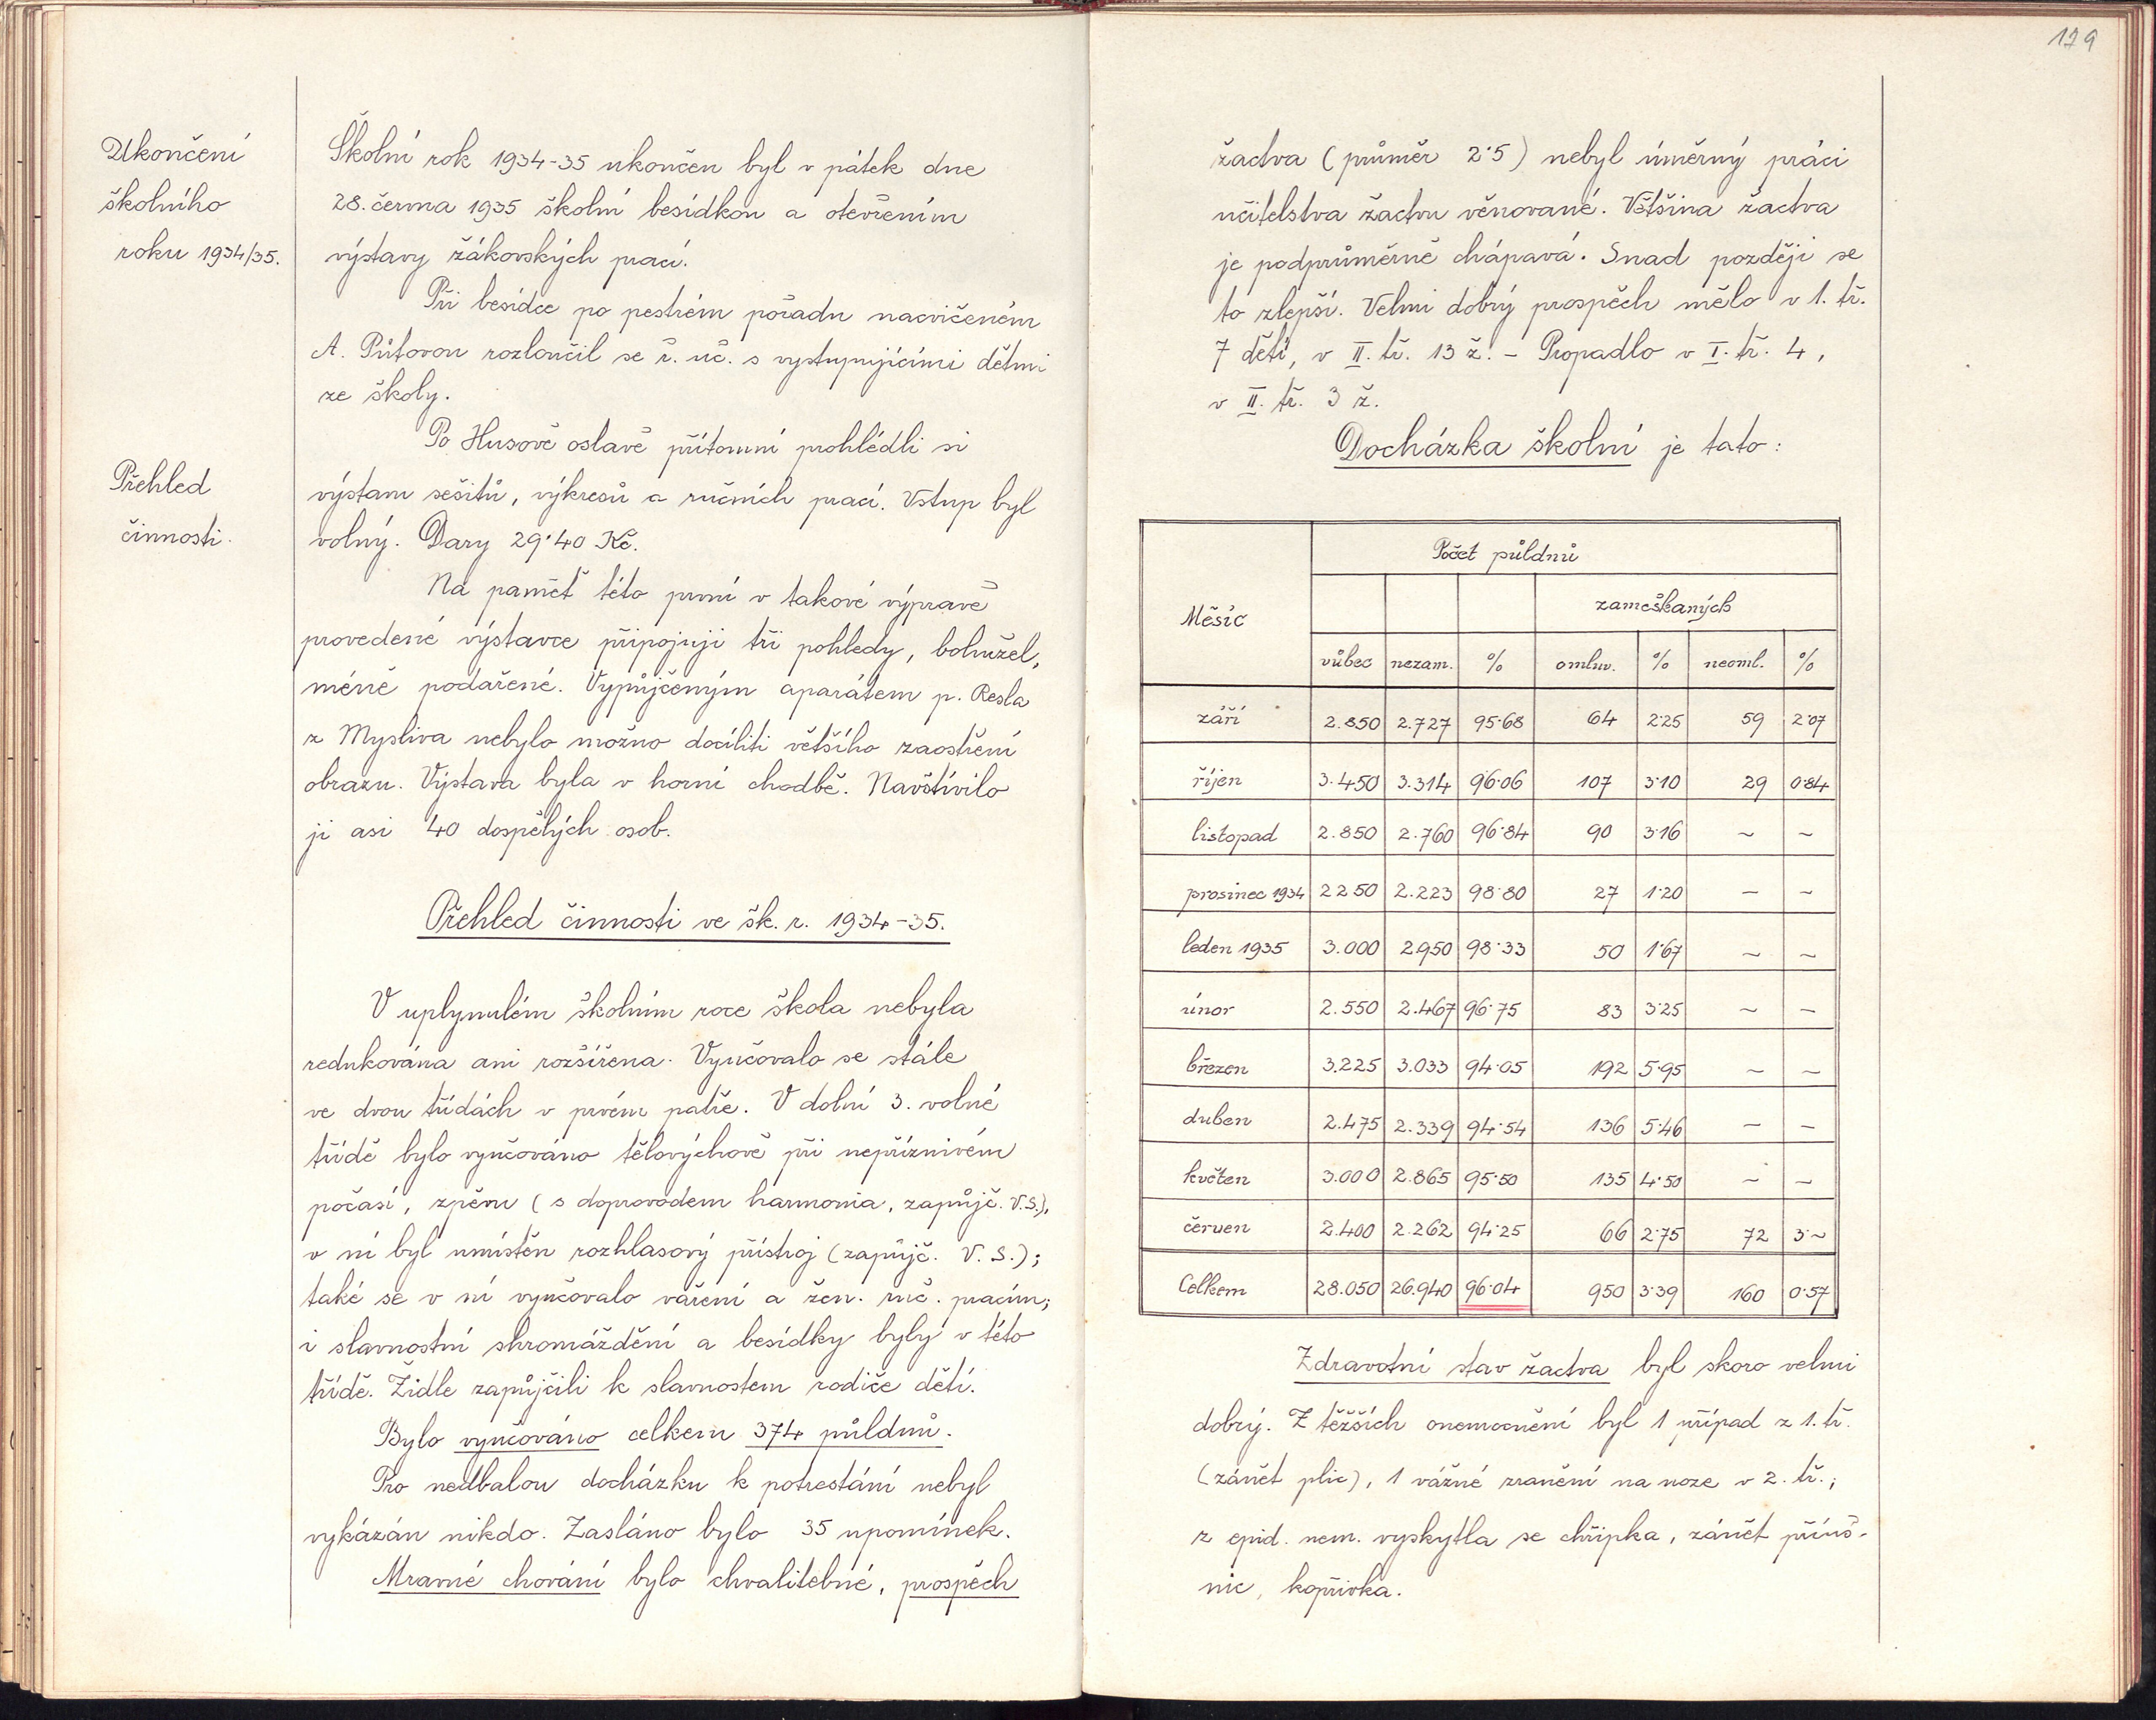 Ukončení
školního
roku 1934/35.
Školní rok 1934-35 ukončen byl v pátek dne
28. června 1935 školní besídkou a otevřením
výstavy žákovských prací.
Při besídce po pestrém pořadu nacvičeném
A. Půtovou rozloučil se ř. uč. s vystupujícími dětmi
ze školy.
Po Husově oslavě přítomní prohlédli si
Přehled
činnosti.
výstavu sešitů, výkresů a ručních prací. Vstup byl
volný. Dary 29·40 Kč.
Na paměť této první v takové výpravě
provedené výstavce připojuji tři pohledy, bohužel,
méně podařené. Vypůjčeným aparátem p. Resla
z Mysliva nebylo možno docíliti většího zaostření
obrazu. Výstava byla v horní chodbě. Navštívilo
ji asi 40 dospělých osob.
Přehled činnosti ve šk. r. 1934-35.
V uplynulém školním roce škola nebyla
redukována ani rozšířena. Vyučovalo se stále
ve dvou třídách v prvém patře. V dolní 3. volné
třídě bylo vyučováno tělovýchově při nepříznivém
počasí, zpěvu (s doprovodem harmonia, zapůjč. V.S.),
v ní byl umístěn rozhlasový přístroj (zapůjč. V. S.);
také se v ní vyučovalo vaření a žen. ruč. pracím;
i slavnostní shromáždění a besídky byly v této
třídě. Židle zapůjčili k slavnostem rodiče dětí.
Bylo vyučováno celkem 374 půldnů.
Pro nedbalou docházku k potrestání nebyl
vykázán nikdo. Zasláno bylo 35 upomínek.
Mravné chování bylo chvalitebné, prospěch
179
žactva (průměr 2·5) nebyl úměrný práci
učitelstva žactvu věnované. Většina žactva
je podprůměrně chápavá. Snad později se
to zlepší. Velmi dobrý prospěch mělo v 1. tř.
7 dětí, v II. tř. 13 ž. - Propadlo v I. tř. 4,
v II. tř. 3 ž.
Docházka školní je tato:
Měsíc Počet půldnů
zameškaných
vůbec nezam. % omluv. % neoml. %
září 2.850 2.727 95·68 64 2·25 59 2·07
říjen 3.450 3.314 96·06 107 3·10 29 0·84
listopad 2.850 2.760 96·84 90 3·16 ~ ~
prosinec 1934 2250 2.223 98·80 27 1·20 — ~
leden 1935 3.000 2950 98·33 50 1·67 ~ ~
únor 2.550 2.467 96·75 83 3·25 ~ —
březen 3.225 3.033 94·05 192 5·95 ~ ~
duben 2.475 2.339 94·54 136 5·46 — —
květen 3.000 2.865 95·50 135 4·50 ~ ~
červen 2.400 2.262 94·25 66 2·75 72 3·~
Celkem 28.050 26.940 96·04 950 3·39 160 0·57
Zdravotní stav žactva byl skoro velmi
dobrý. Z těžších onemocnění byl 1 případ z 1. tř.
(zánět plic), 1 vážné zranění na noze v 2. tř.;
z epid. nem. vyskytla se chřipka, zánět příuš-
nic, kopřivka.